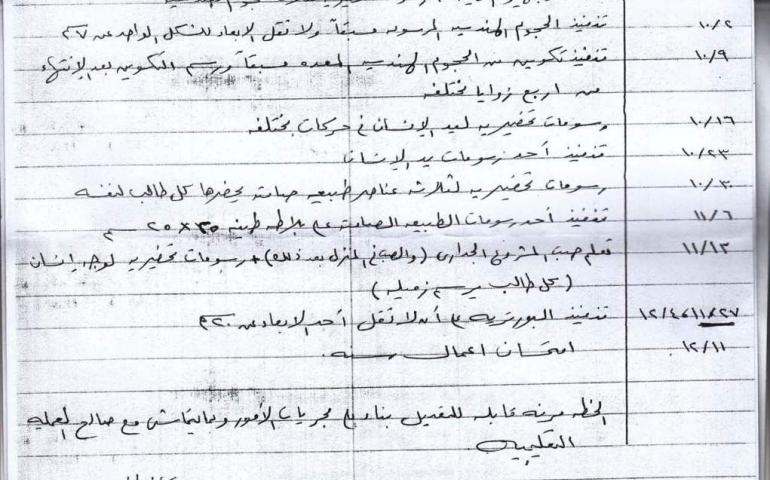 ١٠/٢ تنفيذ الحجوم الهندسيه المرسومه مسبقاً ولا تقل الابعاد للشكل الواحد عن ٧سم
١٠/٩ تنفيذ تكوين من الحجوم الهندسيه المعده مسبقاً ورسم التكوين بعد الإنتهاء
من اربع زوايا مختلفه
١٠/١٦ رسومات تحضيريه ليد الإنسان في حركات مختلفه
١٠/٢٣ تنفيذ أحد رسومات يد الإنسان
١٠/٣٠ رسومات تحضيريه لثلاثه عناصر طبيعيه صامته يحضرها كل طالب لنفسه
١١/٦ تنفيذ أحد رسومات الطبيعه الصامته على بلاطه طينه ٣٥×٢٥ سم
١١/١٣ تعلم صب المشروع الجدارى (والصب فى المنزل بعد ذلك) + رسومات تحضيريه لوجه إنسان
(كل طالب يرسم زميله)
١١/٢٧، ١٢/٤ تنفيذ البورتريه على أن لا تقل أحد الابعاد عن ٢٠سم
١٢/١١ امتحان اعمال سنه.
الخطه مرنه قابله للتعديل بناء على مجريات الأمور وبما يتماشى مع صالح العمليه
التعليميه